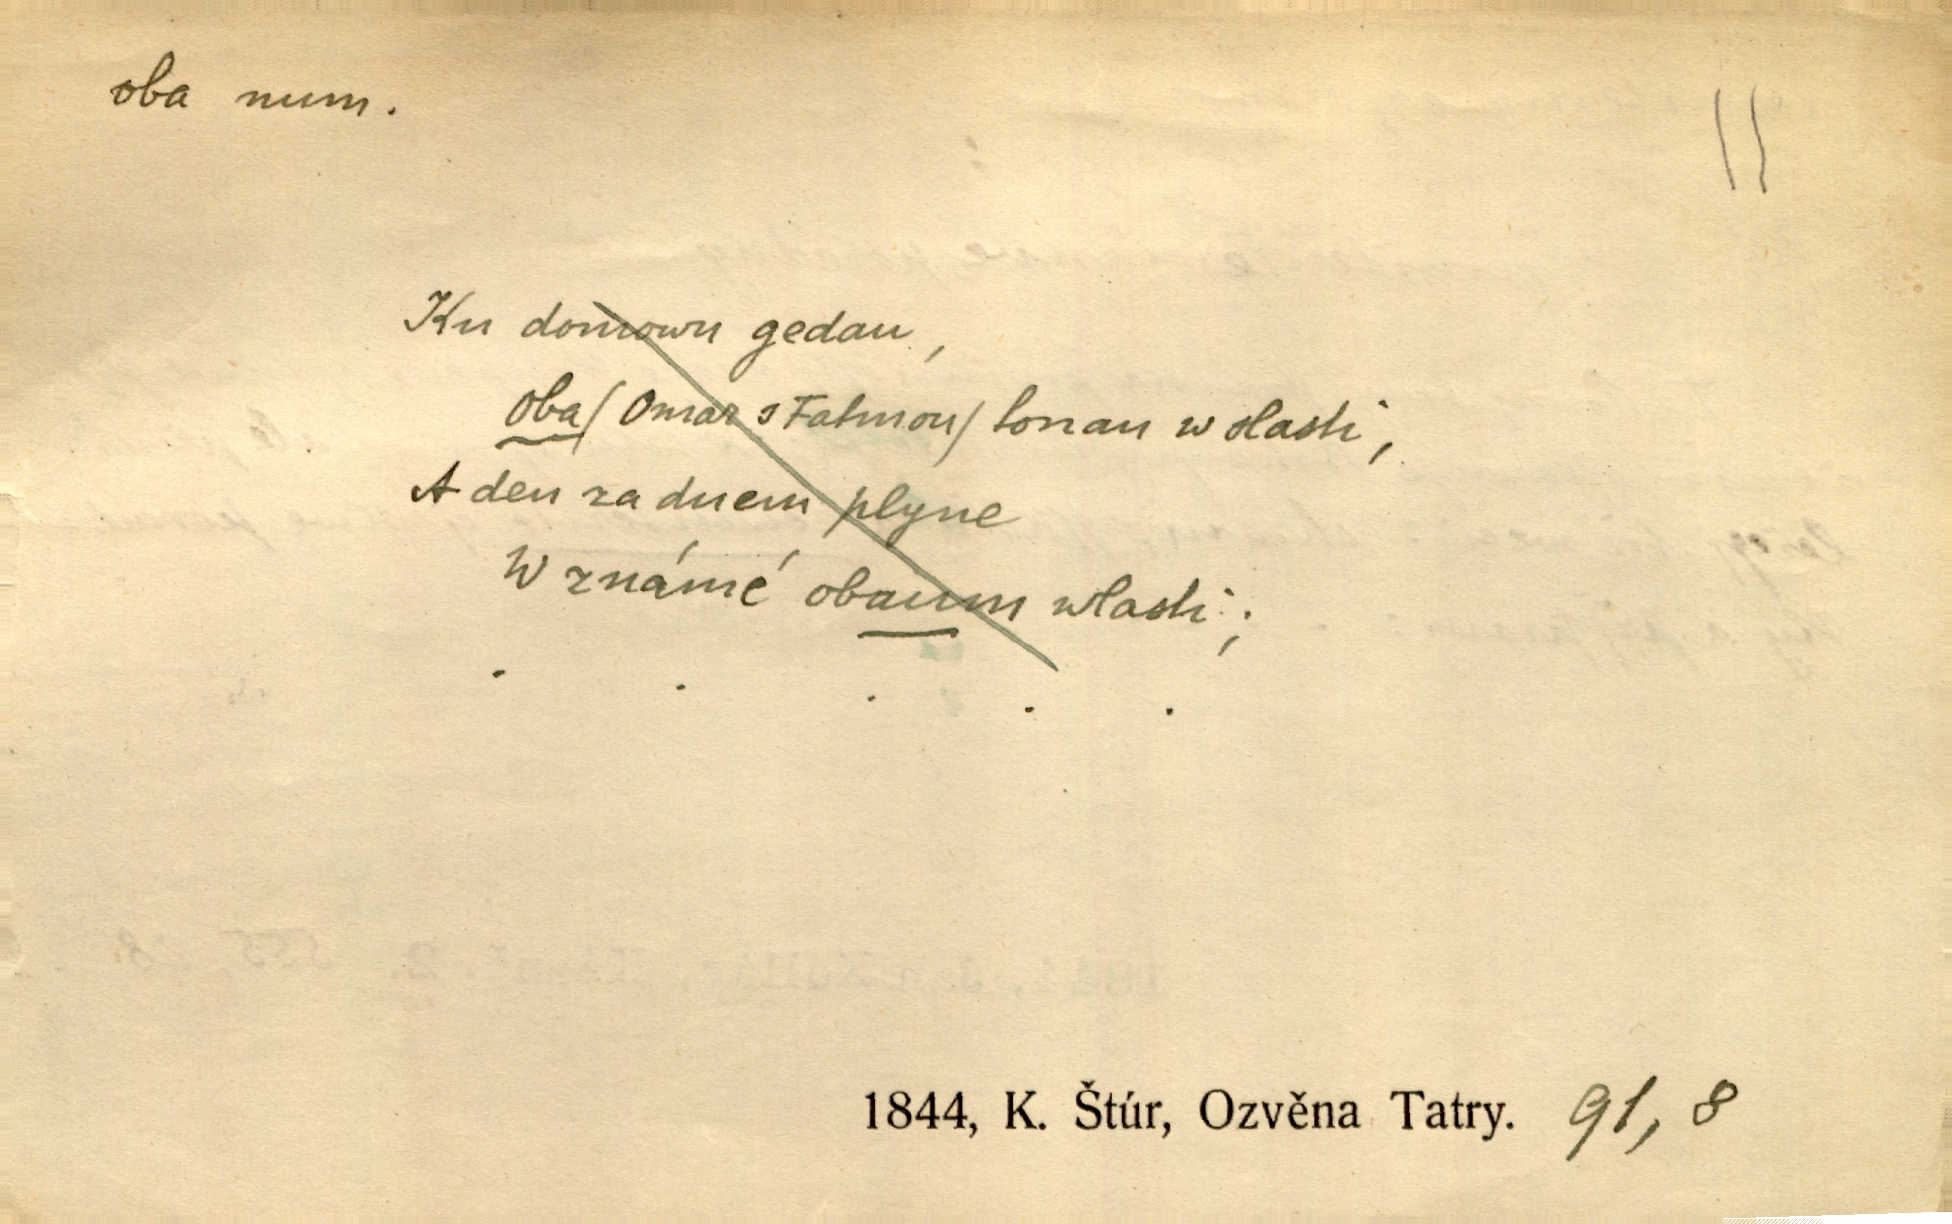 oba num.
Ku domowu gedau,
oba (Omar s Fatmou) tonau w slasti,
A den za dnem plyne
W známé obaum wlasti;
. . . . .
1844, K. Štúr, Ozvěna Tatry. 91, 8